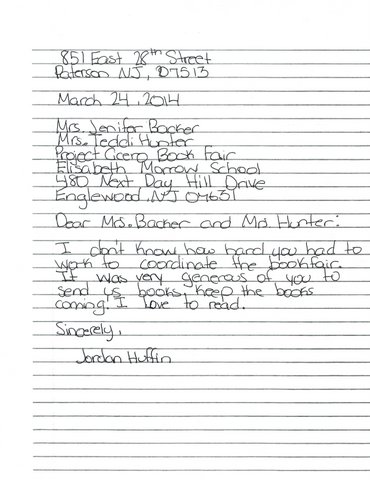 851 East 28th Street
Paterson NJ, 07513
March 24, 2014
Mrs. Jenifer Backer
Mrs. Teddi Hunter
Project Cicero Book Fair
Elisabeth Morrow School
480 Next Day Hill Drive
Englewood NJ 07631
Dear Mrs. Backer and Mrs Hunter:
I don't know how hard you had to
work to coordinate the bookfair.
It was very generous of you to
send us books. Keep the books
coming! I love to read.
Sincerely,
Jordan Huffin